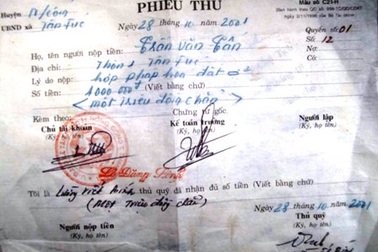 Huyện N/Cống
UBND xã Tân Phúc
PHIẾU THU
Mẫu số C21-H
Ngày 28 tháng 10 năm 2001
Quyển số: 01
Số 12
Nợ
Có
Họ, tên người nộp tiền: Trần Văn Tấn
Địa chỉ: Thôn 1 Tân Phúc
Lý do nộp: hợp pháp hóa đất ở
Số tiền: 1000 000đ (Viết bằng chữ)
(một triệu đồng chẵn)
Kèm theo: Chứng từ gốc.
Chủ tài khoản
(Ký, họ tên)
Kế toán trưởng
(Ký, họ tên)
Người lập
(Ký, họ tên)
Lê Đăng
Tôi là thủ quỹ đã nhận đủ số tiền (Viết bằng chữ)
(một triệu đồng chẵn)
Ngày 28 tháng 10 năm 2001
Người nộp tiền
(Ký, họ tên)
Thủ quỹ
(Ký, họ tên)